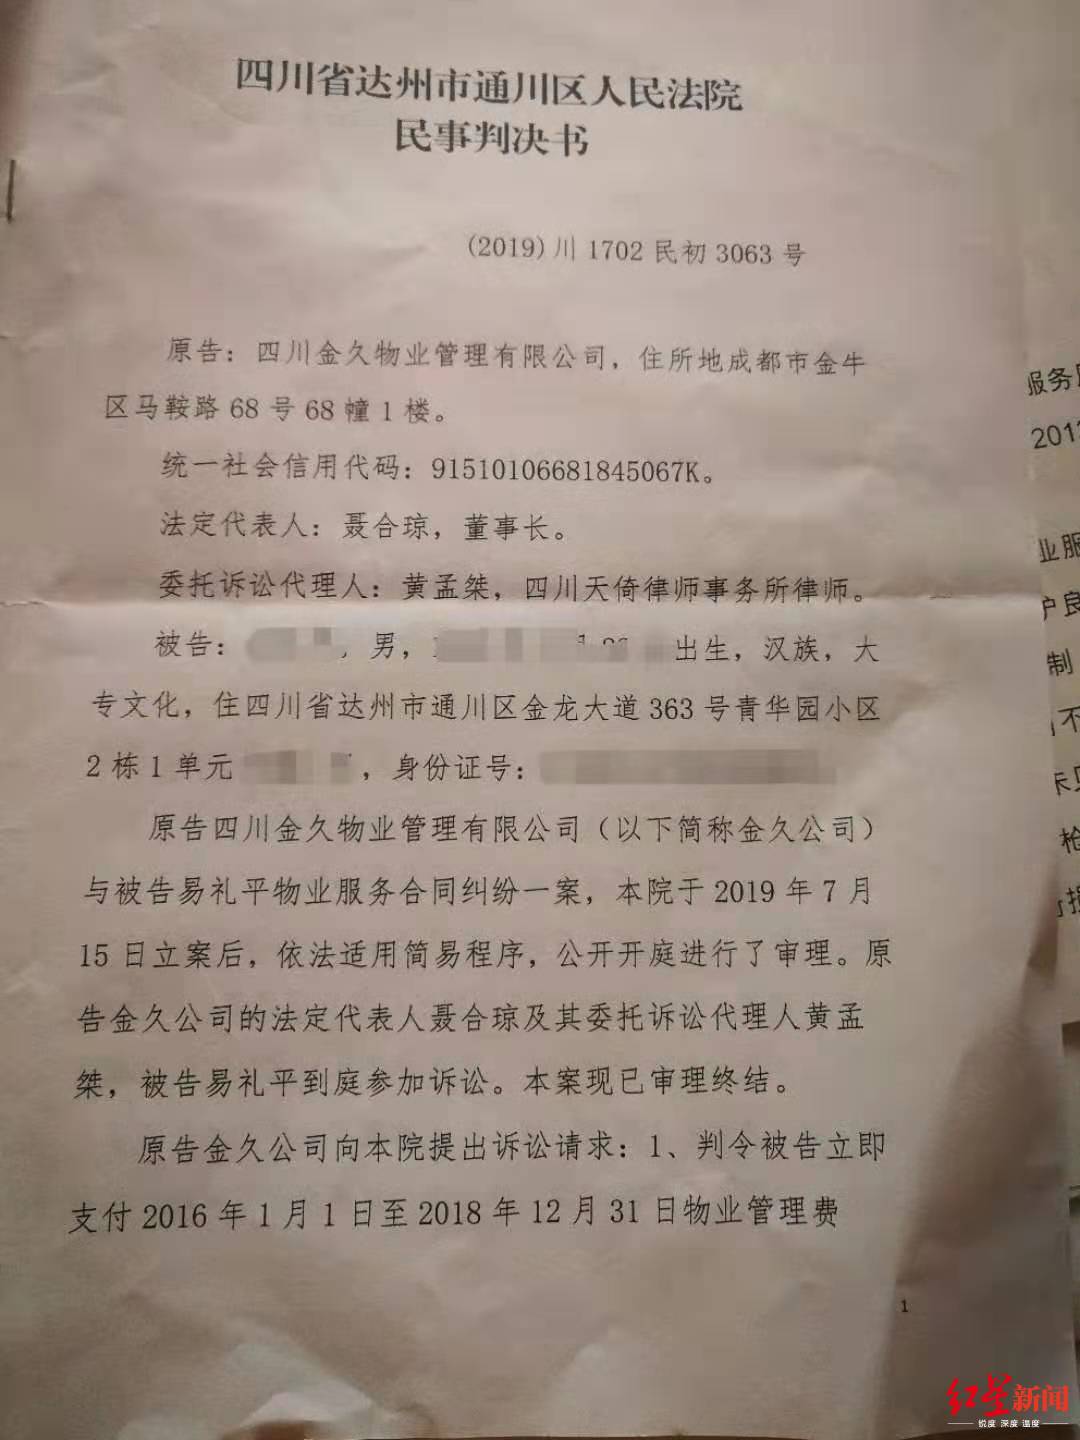 四川省达州市通川区人民法院
民事判决书
(2019)川1702民初3063号
原告：四川金久物业管理有限公司，住所地成都市金牛
区马鞍路68号68幢1楼。
统一社会信用代码：91510106681845067K。
法定代表人：聂合琼，董事长。
委托诉讼代理人：黄孟桀，四川天倚律师事务所律师。
被告：，男，出生，汉族，大
专文化，住四川省达州市通川区金龙大道363号青华园小区
2栋1单元，身份证号：
原告四川金久物业管理有限公司（以下简称金久公司）
与被告易礼平物业服务合同纠纷一案，本院于2019年7月
15日立案后，依法适用简易程序，公开开庭进行了审理。原
告金久公司的法定代表人聂合琼及其委托诉讼代理人黄孟
桀，被告易礼平到庭参加诉讼。本案现已审理终结。
原告金久公司向本院提出诉讼请求：1、判令被告立即
支付2016年1月1日至2018年12月31日物业管理费
1
服务
201
业服
护良
制
不
红星新闻
锐度 深度 温度